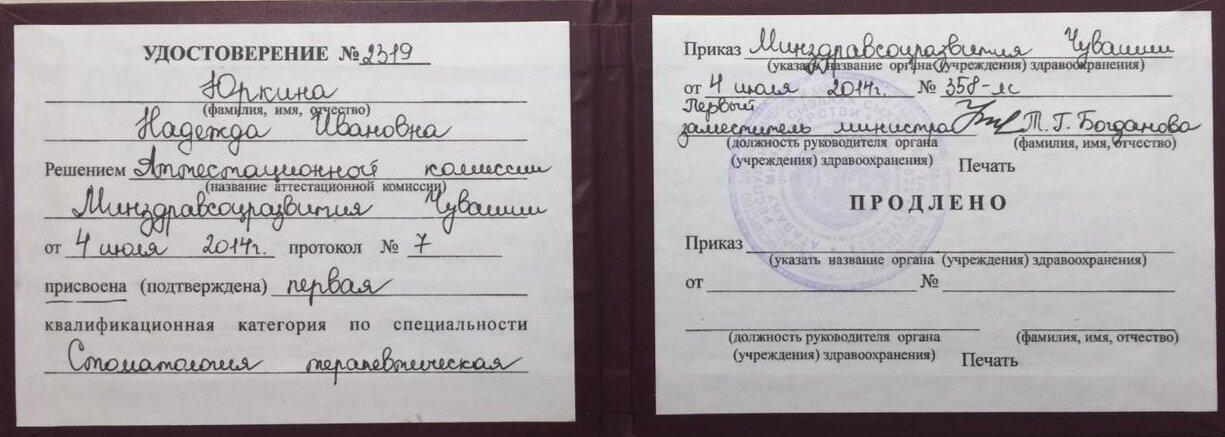 УДОСТОВЕРЕНИЕ №2319
Юркина
(фамилия, имя, отчество)
Надежда Ивановна
Решением Аттестационной комиссии
(название аттестационной комиссии)
Минздравсоцразвития Чувашии
от 4 июля 2014г. протокол № 7
присвоена (подтверждена) первая
квалификационная категория по специальности
Стоматология терапевтическая
Приказ Минздравсоцразвития Чувашии
(указать название органа (учреждения) здравоохранения)
от 4 июля 2014г. № 358-лс
Первый
заместитель министра Т.Г. Богданова
(должность руководителя органа (фамилия, имя, отчество)
(учреждения) здравоохранения) Печать
ПРОДЛЕНО
Приказ
(указать название органа (учреждения) здравоохранения)
от №
(должность руководителя органа (фамилия, имя, отчество)
(учреждения) здравоохранения) Печать